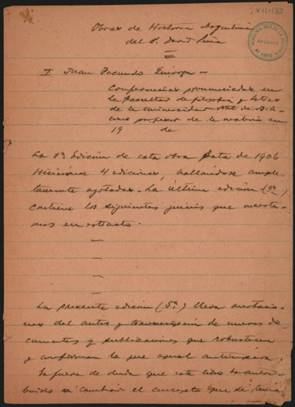 Obras de Historia Argentina
del Dr. David Peña
I Juan Facundo Quiroga —
Conferencias pronunciadas en
la Facultad de filosofía y letras
de la universidad Nal. de Bs.
Aires profesor de la materia en
19 de
La 1ª Edicion de esta obra data de 1906
Hicieronse 4 ediciones, hallándose completamente agotadas. La última edición (4ª)
contiene los siguientes juicios que insertamos en extracto.
La presente edición (5ª) lleva anotaciones del autor y transcripcion de nuevos documentos y publicaciones que robustecen
y confirman la que aquel anticipara.
Es fuera de duda que este libro ha contribuido a cambiar el concepto que se tenía